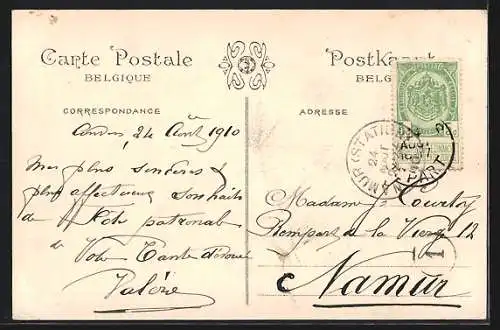 Carte Postale
BELGIQUE
CORRESPONDANCE
24 Août 1910
Mes plus sincères &
plus affectueux souhaits
de fête patronale
de Votre Tante dévouée
Valérie
PostKaart
BELG
ADRESSE
NAMUR (STATION)
24
AOUT
DÉPART
Madame
Rempart de la Vierge 12
Namur